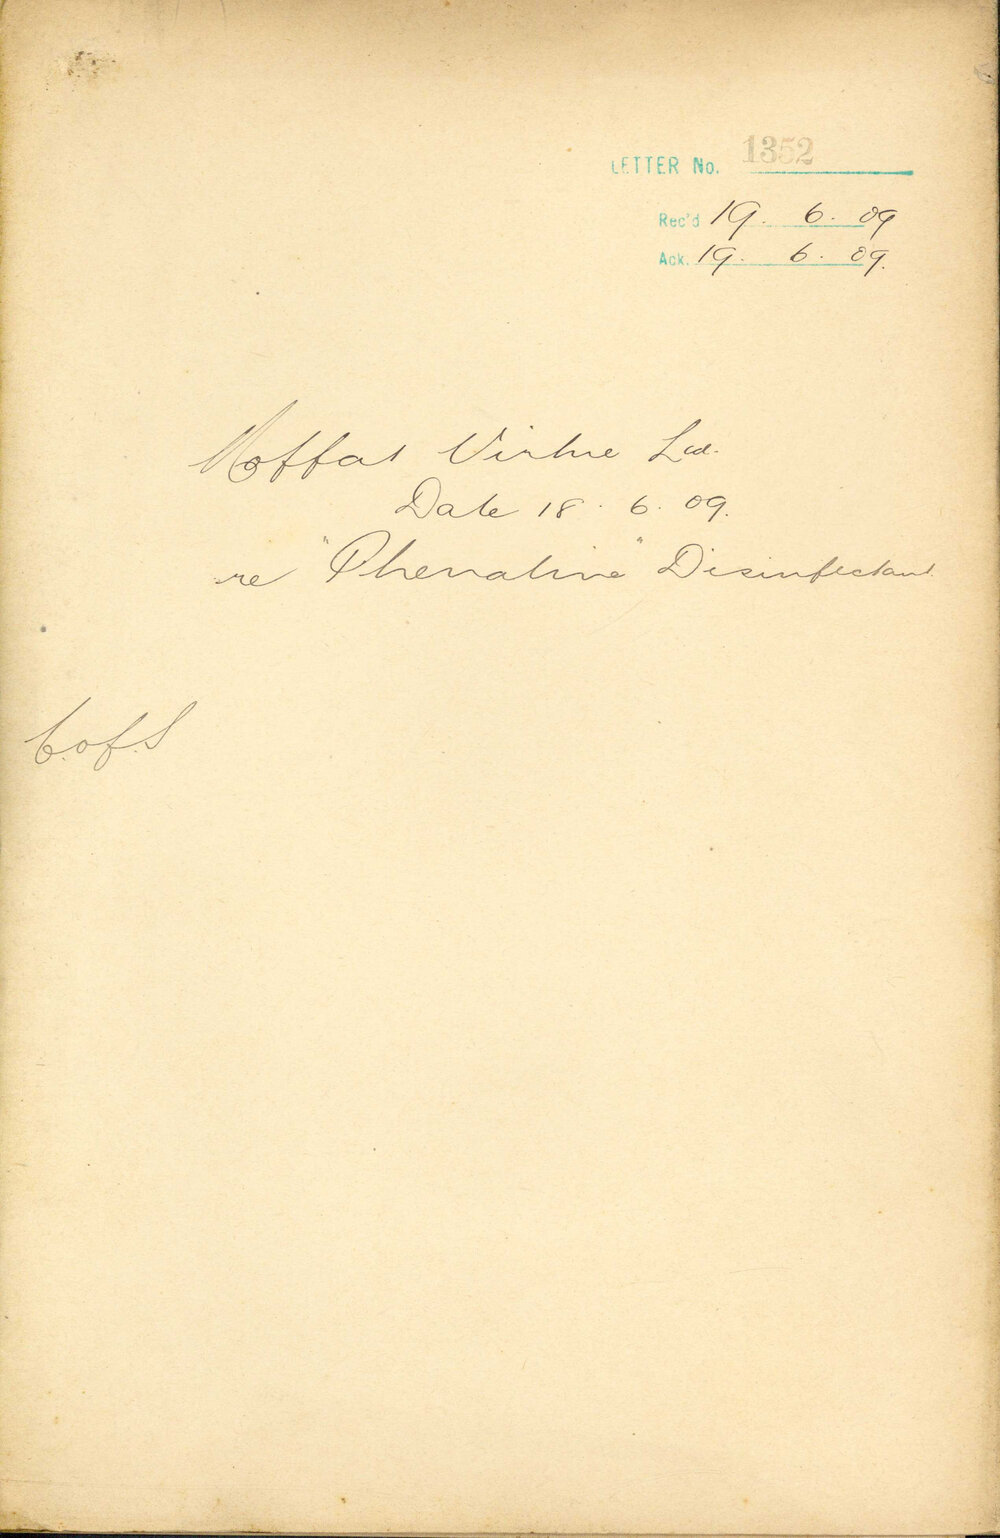 LETTER No. 1352
Rec'd 19. 6. 09
Ack. 19. 6. 09.
Moffat Virtue Ltd.
Date 18. 6. 09.
re "Phenaline" Disinfectant
C.of.S